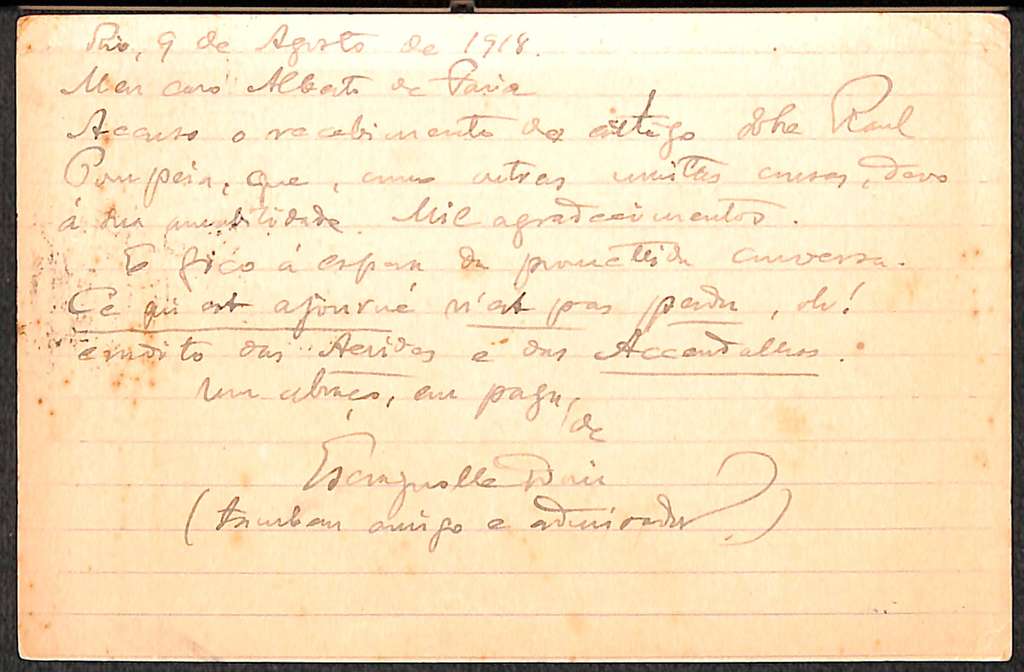 Rio, 9 de Agosto de 1918.
Meu caro Alberto de Faria
Accuso o recebimento do artigo sobre Raul
Pompéia, que, como outras muitas cousas, devo
á sua amabilidade. Mil agradecimentos.
E fico á espera da promettida conversa.
Ce qui est ajourné n'est pas perdu, oh!
erudito das Aerides e dos Accendalhas.
Um abraço, em paga,
de
Escragnolle Doria
(tambem amigo e admirador)